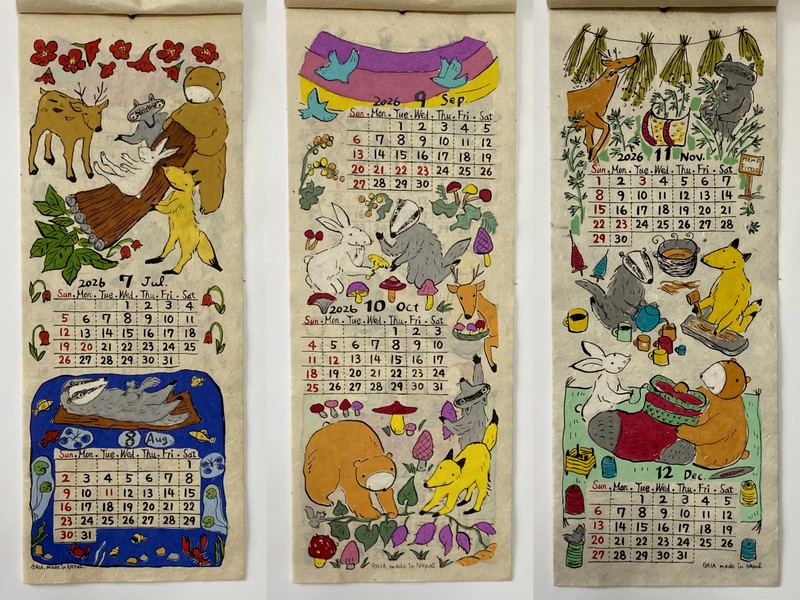 2026 7 Jul.
Sun. Mon. Tue. Wed. Thu. Fri. Sat
1 2 3 4
5 6 7 8 9 10 11
12 13 14 15 16 17 18
19 20 21 22 23 24 25
26 27 28 29 30 31
8 Aug.
Sun. Mon. Tue. Wed. Thu. Fri. Sat
1
2 3 4 5 6 7 8
9 10 11 12 13 14 15
16 17 18 19 20 21 22
23 24 25 26 27 28 29
30 31
GAIA, made in Nepal
2026 9 Sep.
Sun. Mon. Tue. Wed. Thu. Fri. Sat
1 2 3 4 5
6 7 8 9 10 11 12
13 14 15 16 17 18 19
20 21 22 23 24 25 26
27 28 29 30
2026 10 Oct
Sun. Mon. Tue. Wed. Thu. Fri. Sat
1 2 3
4 5 6 7 8 9 10
11 12 13 14 15 16 17
18 19 20 21 22 23 24
25 26 27 28 29 30 31
GAIA made in Nepal
2026 11 Nov.
HEMP
Forest
Sun. Mon. Tue. Wed. Thu. Fri. Sat
1 2 3 4 5 6 7
8 9 10 11 12 13 14
15 16 17 18 19 20 21
22 23 24 25 26 27 28
29 30
12 Dec.
Sun. Mon. Tue. Wed. Thu. Fri. Sat
1 2 3 4 5
6 7 8 9 10 11 12
13 14 15 16 17 18 19
20 21 22 23 24 25 26
27 28 29 30 31
GAIA made in Nepal